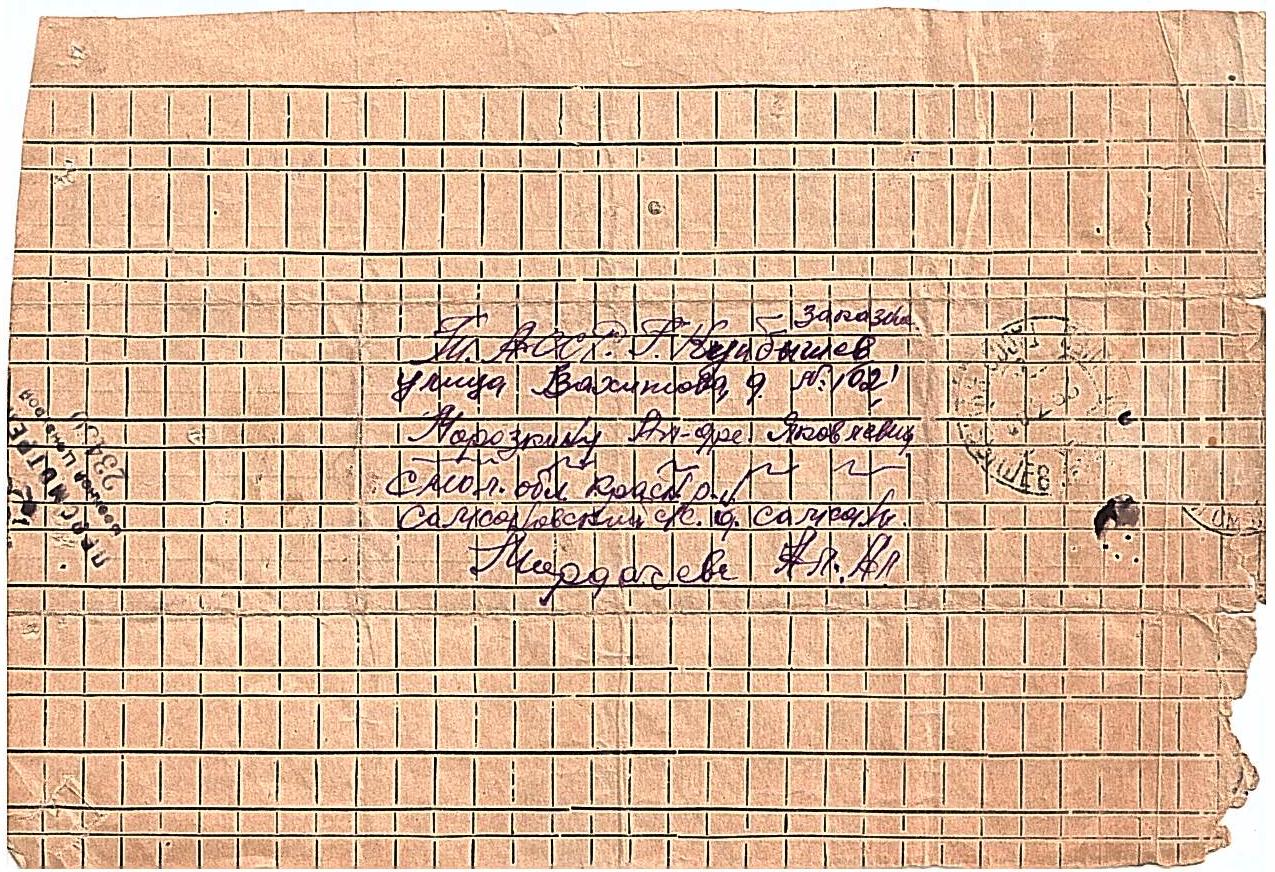 Заказн.
Т. АССР. Г. Куйбышев
улица Вахитова, д. № 102
Морозкину Ан-дре. Яковлевич
Смол. обл. Красн. р.
Самсоновский с/с. д. Самсон.
Ал. Ал
ПРОСМОТРЕНО
Военной Цензурой
23451